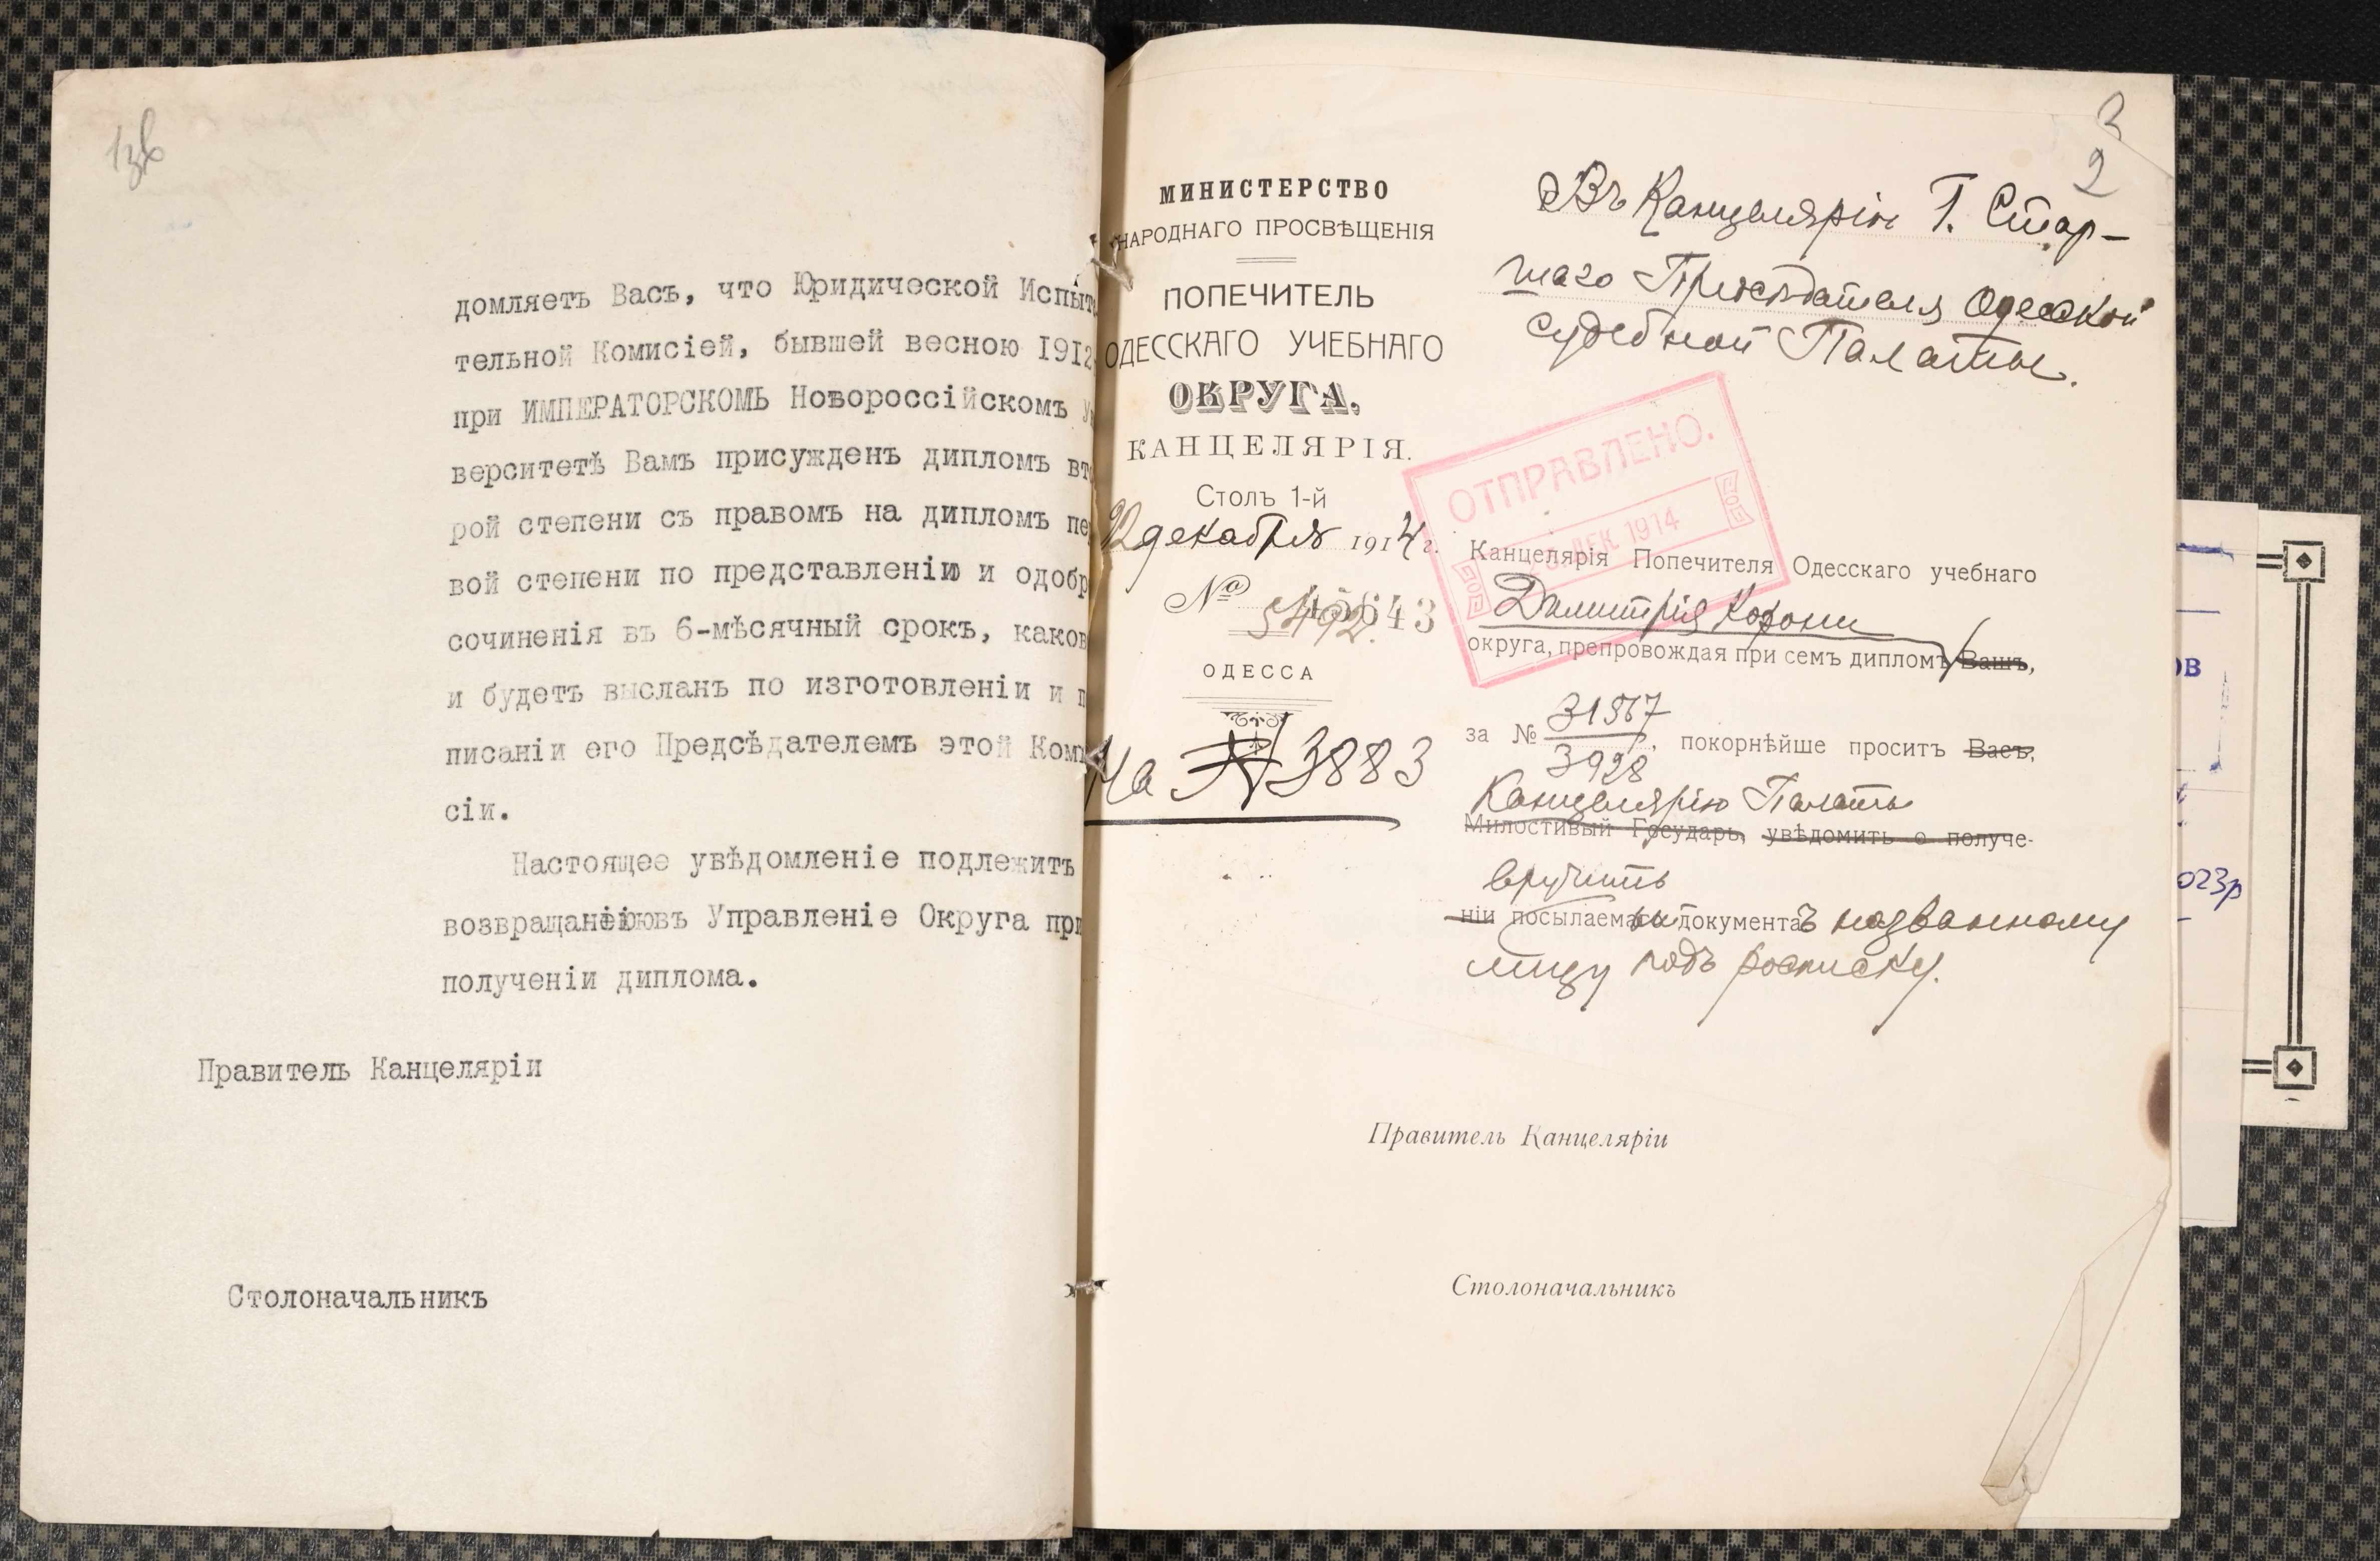 домляетъ Васъ, что Юридической Испыт
тельной Комисіей, бывшей весною 1912
при ИМПЕРАТОРСКОМЪ Новороссійскомъ
верситетѣ Вамъ присужденъ дипломъ вто
рой степени съ правомъ на дипломъ пе
вой степени по представленію и одобр
сочиненія въ 6-мѣсячный срокъ, каков
и будетъ высланъ по изготовленіи и п
писаніи его Предсѣдателемъ этой Ком
сіи.
Настоящее увѣдомленіе подлежитъ
въ Управленіе Округа при
полученіи диплома.
Правитель Канцеляріи
Столоначальникъ
3
2
МИНИСТЕРСТВО
НАРОДНАГО ПРОСВѢЩЕНІЯ
ПОПЕЧИТЕЛЬ
ОДЕССКАГО УЧЕБНАГО
ОКРУГА,
КАНЦЕЛЯРІЯ.
Столъ 1-й
22 декабря 1914 г.
№
ОДЕССА
На № 3883
Въ Канцелярію Г. Стар-
шаго Предсѣдателя Одесской
Судебной Палаты.
ОТПРАВЛЕНО.
ДЕК 1914
Канцелярія Попечителя Одесскаго учебнаго
Димитрія
округа, препровождая при семъ дипломъ Вашъ,
за № 31567/3928, покорнѣйше проситъ Васъ,
Канцелярію Палаты
Милостивый Государь, увѣдомить о получе-
вручить
ніи документъ названному
лицу подъ росписку.
Правитель Канцеляріи
Столоначальникъ
ов
023р